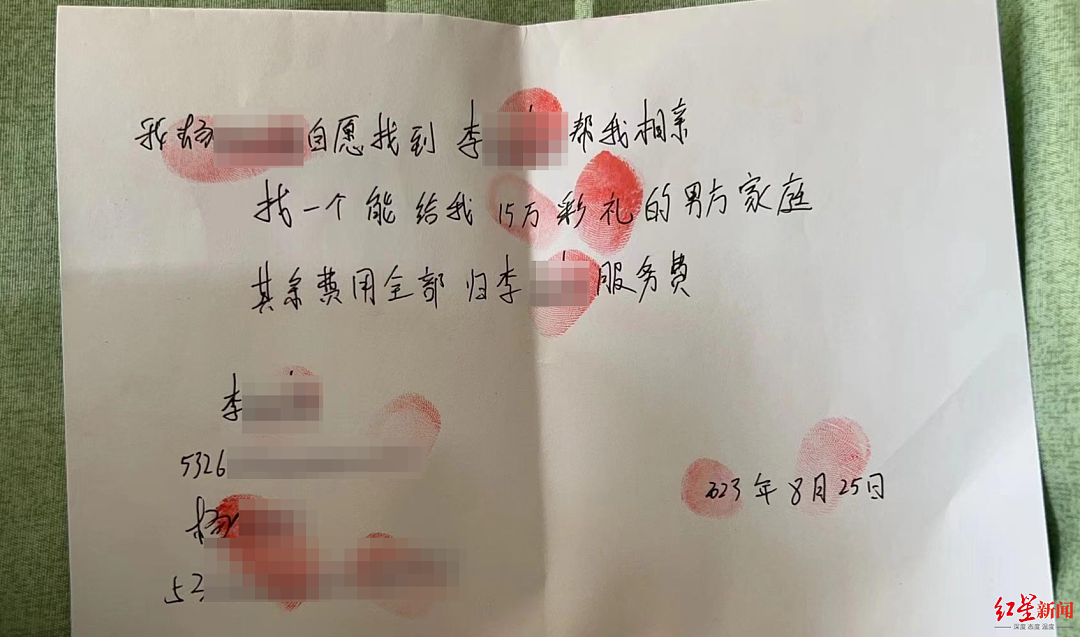 我杨 自愿找到 李 帮我相亲
找一个能给我15万彩礼的男方家庭
其余费用全部归李 服务费
李
5326
杨
52
2023年8月25日
红星新闻
深度 态度 温度